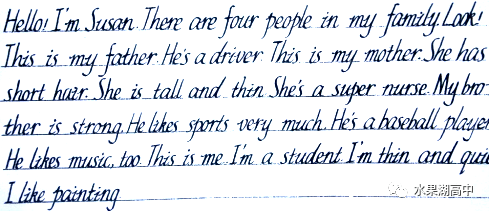 Hello! I'm Susan. There are four people in my family. Look!
This is my father. He's a driver. This is my mother. She has
short hair. She is tall and thin. She's a super nurse. My bro-
ther is strong. He likes sports very much. He's a baseball player
He likes music, too. This is me. I'm a student. I'm thin and
I like painting
水果湖高中